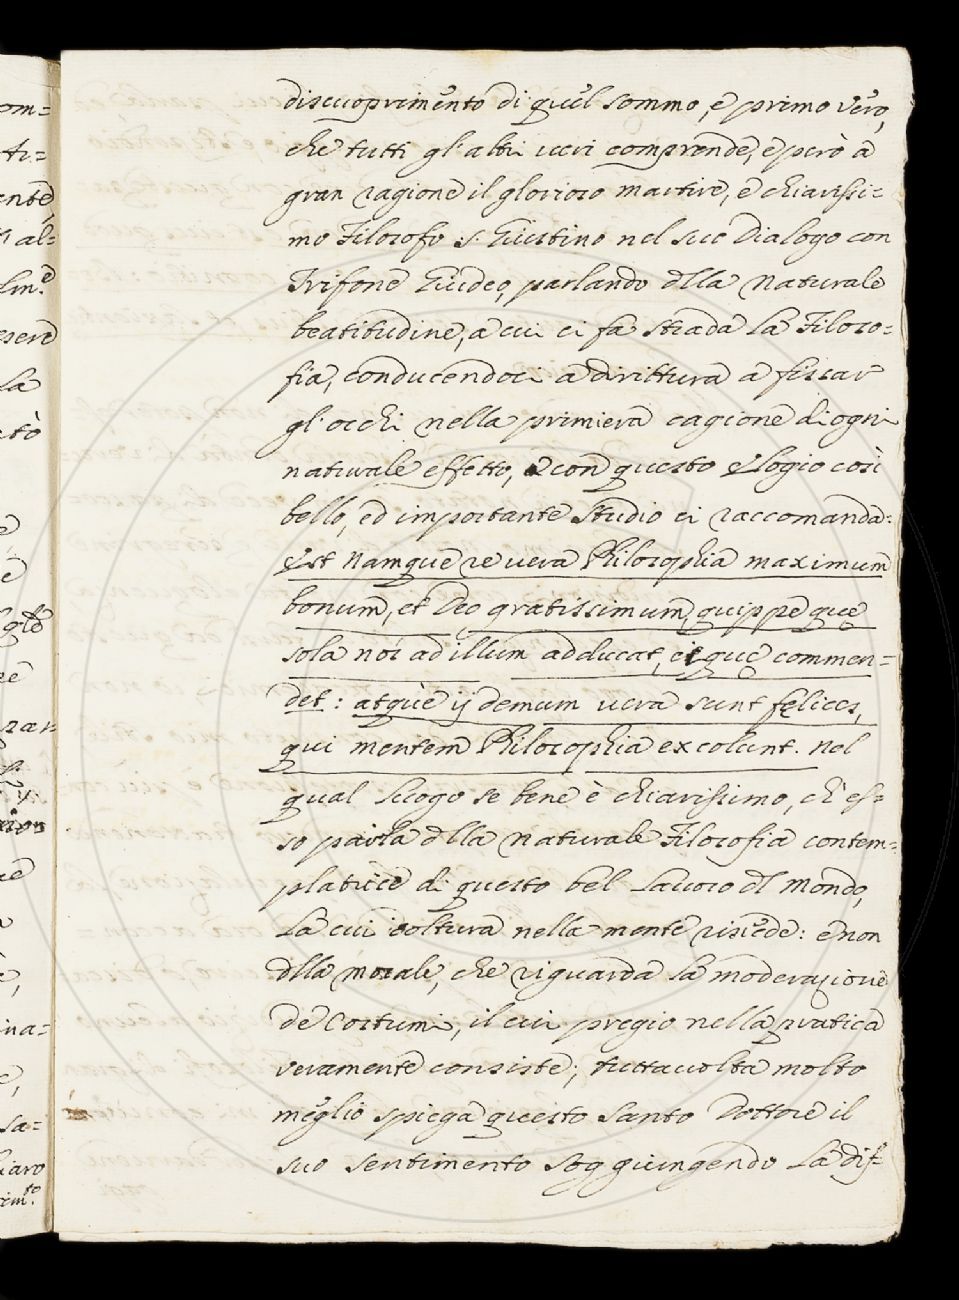 discuoprimento di quel sommo, e primo vero,
che tutti gl'altri veri comprende, e però à
gran ragione il glorioso martire, e chiarissi=
mo Filosofo S. Giustino nel suo Dialogo con
Trifone Giudeo, parlando dlla naturale
beatitudine, à cui ci fà strada la Filoso=
fia, conducendoci à drittura à fissar
gl'occhi nella primiera cagione di ogni
naturale effetto, con questo elogio così
bello, ed importante studio ci raccomanda:
Est namque re vera Philosophia maximum
bonum, et Deo gratissimum, quippe quę
sola nos ad illum adducat, eique commen=
det: atque ij demum vera sunt fęlices,
qui mentem Philosophia excolunt. Nel
qual luogo se bene è chiarissimo, ch'es=
so parla dlla naturale Filosofia contem=
platrice di questo bel lavoro dl mondo,
la cui coltura nella mente risiede: e non
dlla morale, che riguarda la moderazione
de costumi, il cui pregio nella pratica
veramente consiste; tuttavolta molto
meglio spiega questo Santo Dottore il
suo sentimento soggiungendo la dif=
om=
ti=
ante
al=
sere
la
tò
è
ina=
sa=
iaro